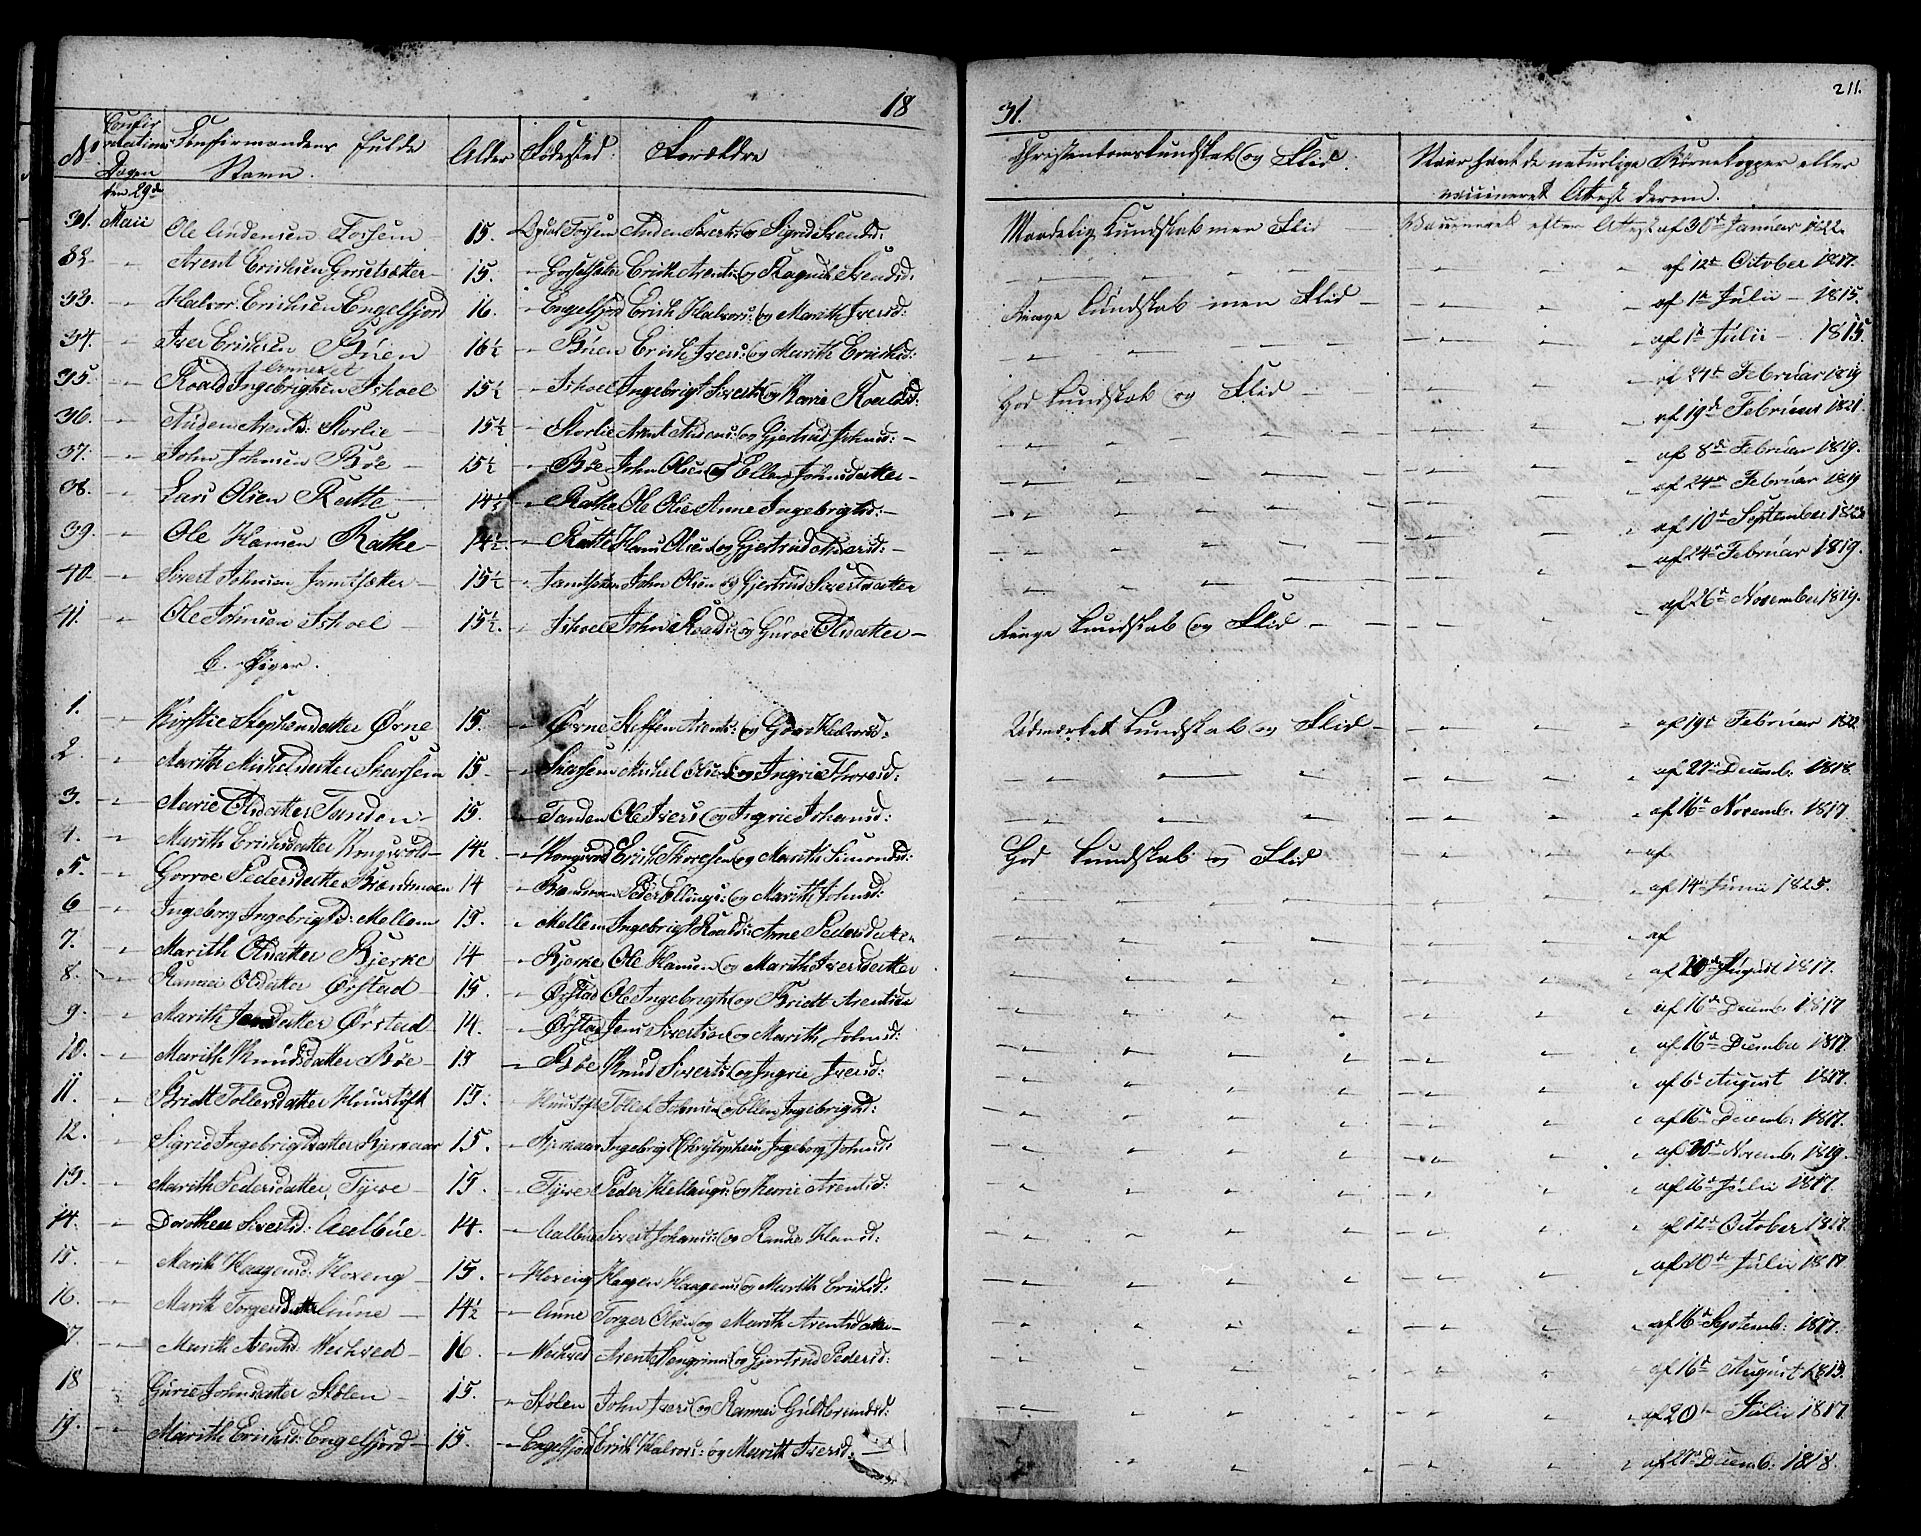 18 31. 211.
No Confirmations Dagen Confirmandens fulde Navn. Alder Fødested: Forældre Christendomskundskab og Flid. Naar havt de naturlige Børnekopper eller vaccineret Attest derom.
den 29de
31. Maii Ole Andensen Forsem 15. Opdal Forsem Anden Siverts: og Sigrid Svends: Maadelig Kundskab men Flid — Vaccineret efter Attest af 30te Januar 1822.
32 — Arent Erichsen Gorsetsætter 15. — Gorsetsætter Erich Arents: og Ragnild Svends: — af 12te October 1817.
33. — Halvor Erichsen Engelsfjord 16. — Engelsfjord Erich Halvors: og Marith Ivers d: Ringe Kundskab men Flid — af 1te Julii — 1815.
34. — Iver Erichsen Büen 16½ — Büen Erich Ivers: og Marith Erichsd: — af 1te Julii — 1815.
35. — Roald Ingebrigtsen Ishoel 15½ — Ishoel Ingebrigt Siverts: og Karie Roaldsd: God Kundskab og Flid — af 24de Februar 1819
36. — Anden Arents: Storlie 15½ — Storlie Arent Andens: og Gjertrud Johnsd: — af 19de Februar 1821.
37. — John Johnsen Böe — 15½ — Böe John Olsen og Ellen Johnsdatter — af 8de Februar 1819.
38. — Lars Olsen Rathe — 14½ — Rathe Ole Olse Anne Ingebrigtsd: — af 24de Februar 1819
39. — Ole Hansen Rathe — 14½ — Rathe Hans Olsen og Gjertrud — af 10de September 1823
40 — Sivert Johnsen Jamtsætter — 15½ — Jamtsæter John Olsen og Gjertrud Sivertsdatter — af 24de Februar 1819.
41. — Ole Johnsen Ishoel — 15½. — Ishoel John Roalds: og Guroe Olsdatter — Ringe Kundskab og Flid — af 26de November 1819.
b. Piger.
1. — Kirstie Stephensdatter Ørne 15. — Ørne Steffen Arents: og Goro Halvorsd: Udmærket Kundskab og Flid — af 19de Februar 1822
2. — Marith Michelsdatter Skarsem 15. — Skarsem Michel Olsen og Ingrie Thoresd: — af 27de Decemb: 1818.
3. — Marie Olsdatter Tanden 15. — Tanden Ole Ivers og Ingrie Johansd: — af 16de Novemb: 1817.
4. — Marith Erichsdatter Kongsvold 14½ — Kongsvold Erich Thoresen og Marith Simonsd: God Kundskab og Flid — af
5. — Gorroe Pedersdatter Brændmoen 14 — Brændmoen Peder Ellings: og Marith Johnsd: — af 14de Junii 1825.
6 — Ingeborg Ingebrigtsd: Mellem 15. — Mellem Ingebrigt Roalds: Arne Pedersdatter — af
7. — Marith Olsdatter Bjerke 14 — Bjerke Ole Hansen og Marith Iversdatter — af 20de August 1817.
8. — Rannei Olsdatter Ørstad — 15. — Ørstad Ole Ingebrigts og Bridt Arentsen — af 16de Decemb: 1817
9. — Marith Jensdatter Ørstad 14. — Ørstad Jens Sivertsen og Marith Johnsd: — af 16de Decembr 1817.
10. — Marith Knudsdatter Böe — 15 — Böe Knud Siverts: og Ingrie Iversd: — af 6te August 1817.
11. — Bridt Tollefsdatter 15. — Tollef Johnsen og Ellen Ingebrigtsd: — af 16de Decembr 1817.
12. — Sigrid Ingebrigtsdatter Bjerkaas 15. — Ingebrigt Christophersen Ingeborg Johnsd: — af 20de Novemb: 1819.
13. — Marith Pedersdatter Tÿve 15. — Tÿve Peder Hellaugs: og Karie Arentsd: — af 16de Julii 1817.
14. — Dorothea Sivertsd: Aalbüe 14. — Aalbüe Sivert Johans: og Randi Hansd: — af 12te October 1817.
15. — Marith Haagensd: Horeng 15. — Horeng Haagen Haagens: og Marith Erichsd: — af 20de Julii 1817
16. — Marith Torgersdatter Aune 14½ — Aune Torger Olsen og Marith Arentsdatter — af 16de Septemb: 1817.
17 — Marith Arentsd: Vechved 16. — Vechved Arent og Gjertrud Pedersd: — af 16de August 1815.
18 — Gurie Johnsdatter Stölen 15. — Stölen John Ivers: og Rannei Guldbrandsd: — af 20de Julii 1817
19. — Marith Erichsd: Engelsfjord 15. — Engelsfjord Erich Halvors: og Marith Iversd: — af 27de Decemb: 1818.